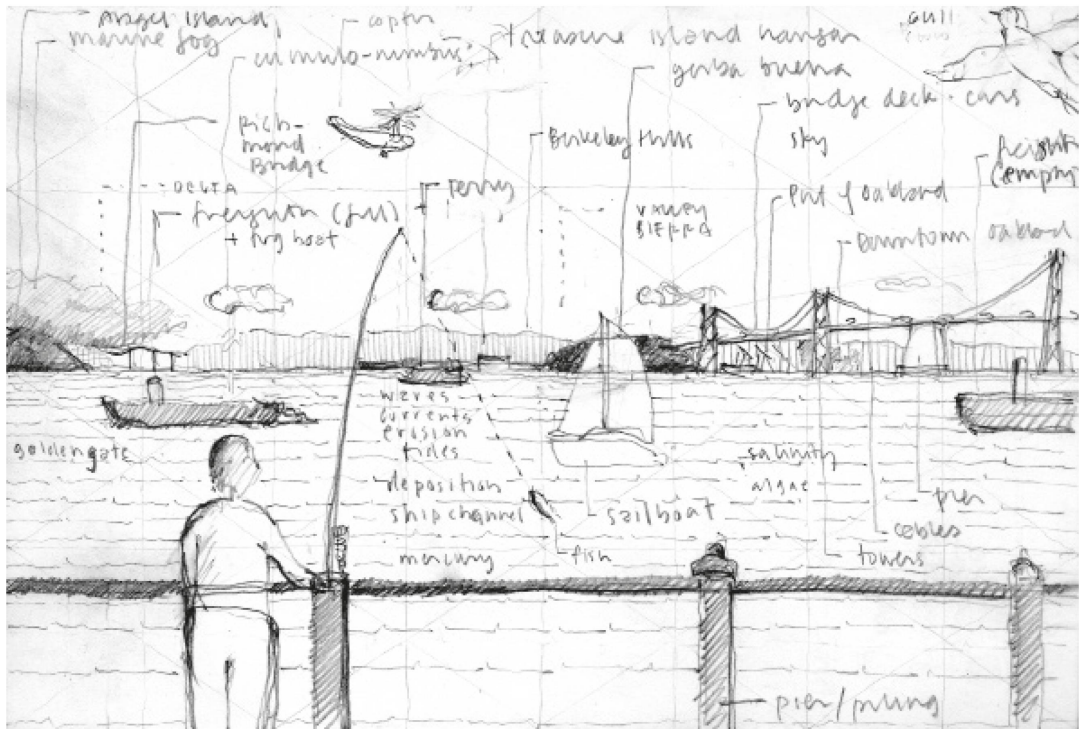 Angel Island
marine fog
cumulo-nimbus
copter
treasure island hangar
yerba buena
bridge deck · cars
sky
gull
Rich-
mond
Bridge
Berkeley Hills
DELTA
ferry
freighter (full)
+ tug boat
VALLEY
SIERRA
Port of oakland
Downtown oakland
freighter
(empty)
goldengate
waves
currents
erosion
tides
deposition
ship channel
mercury
sailboat
fish
salinity
algae
pier
cables
towers
pier/piling